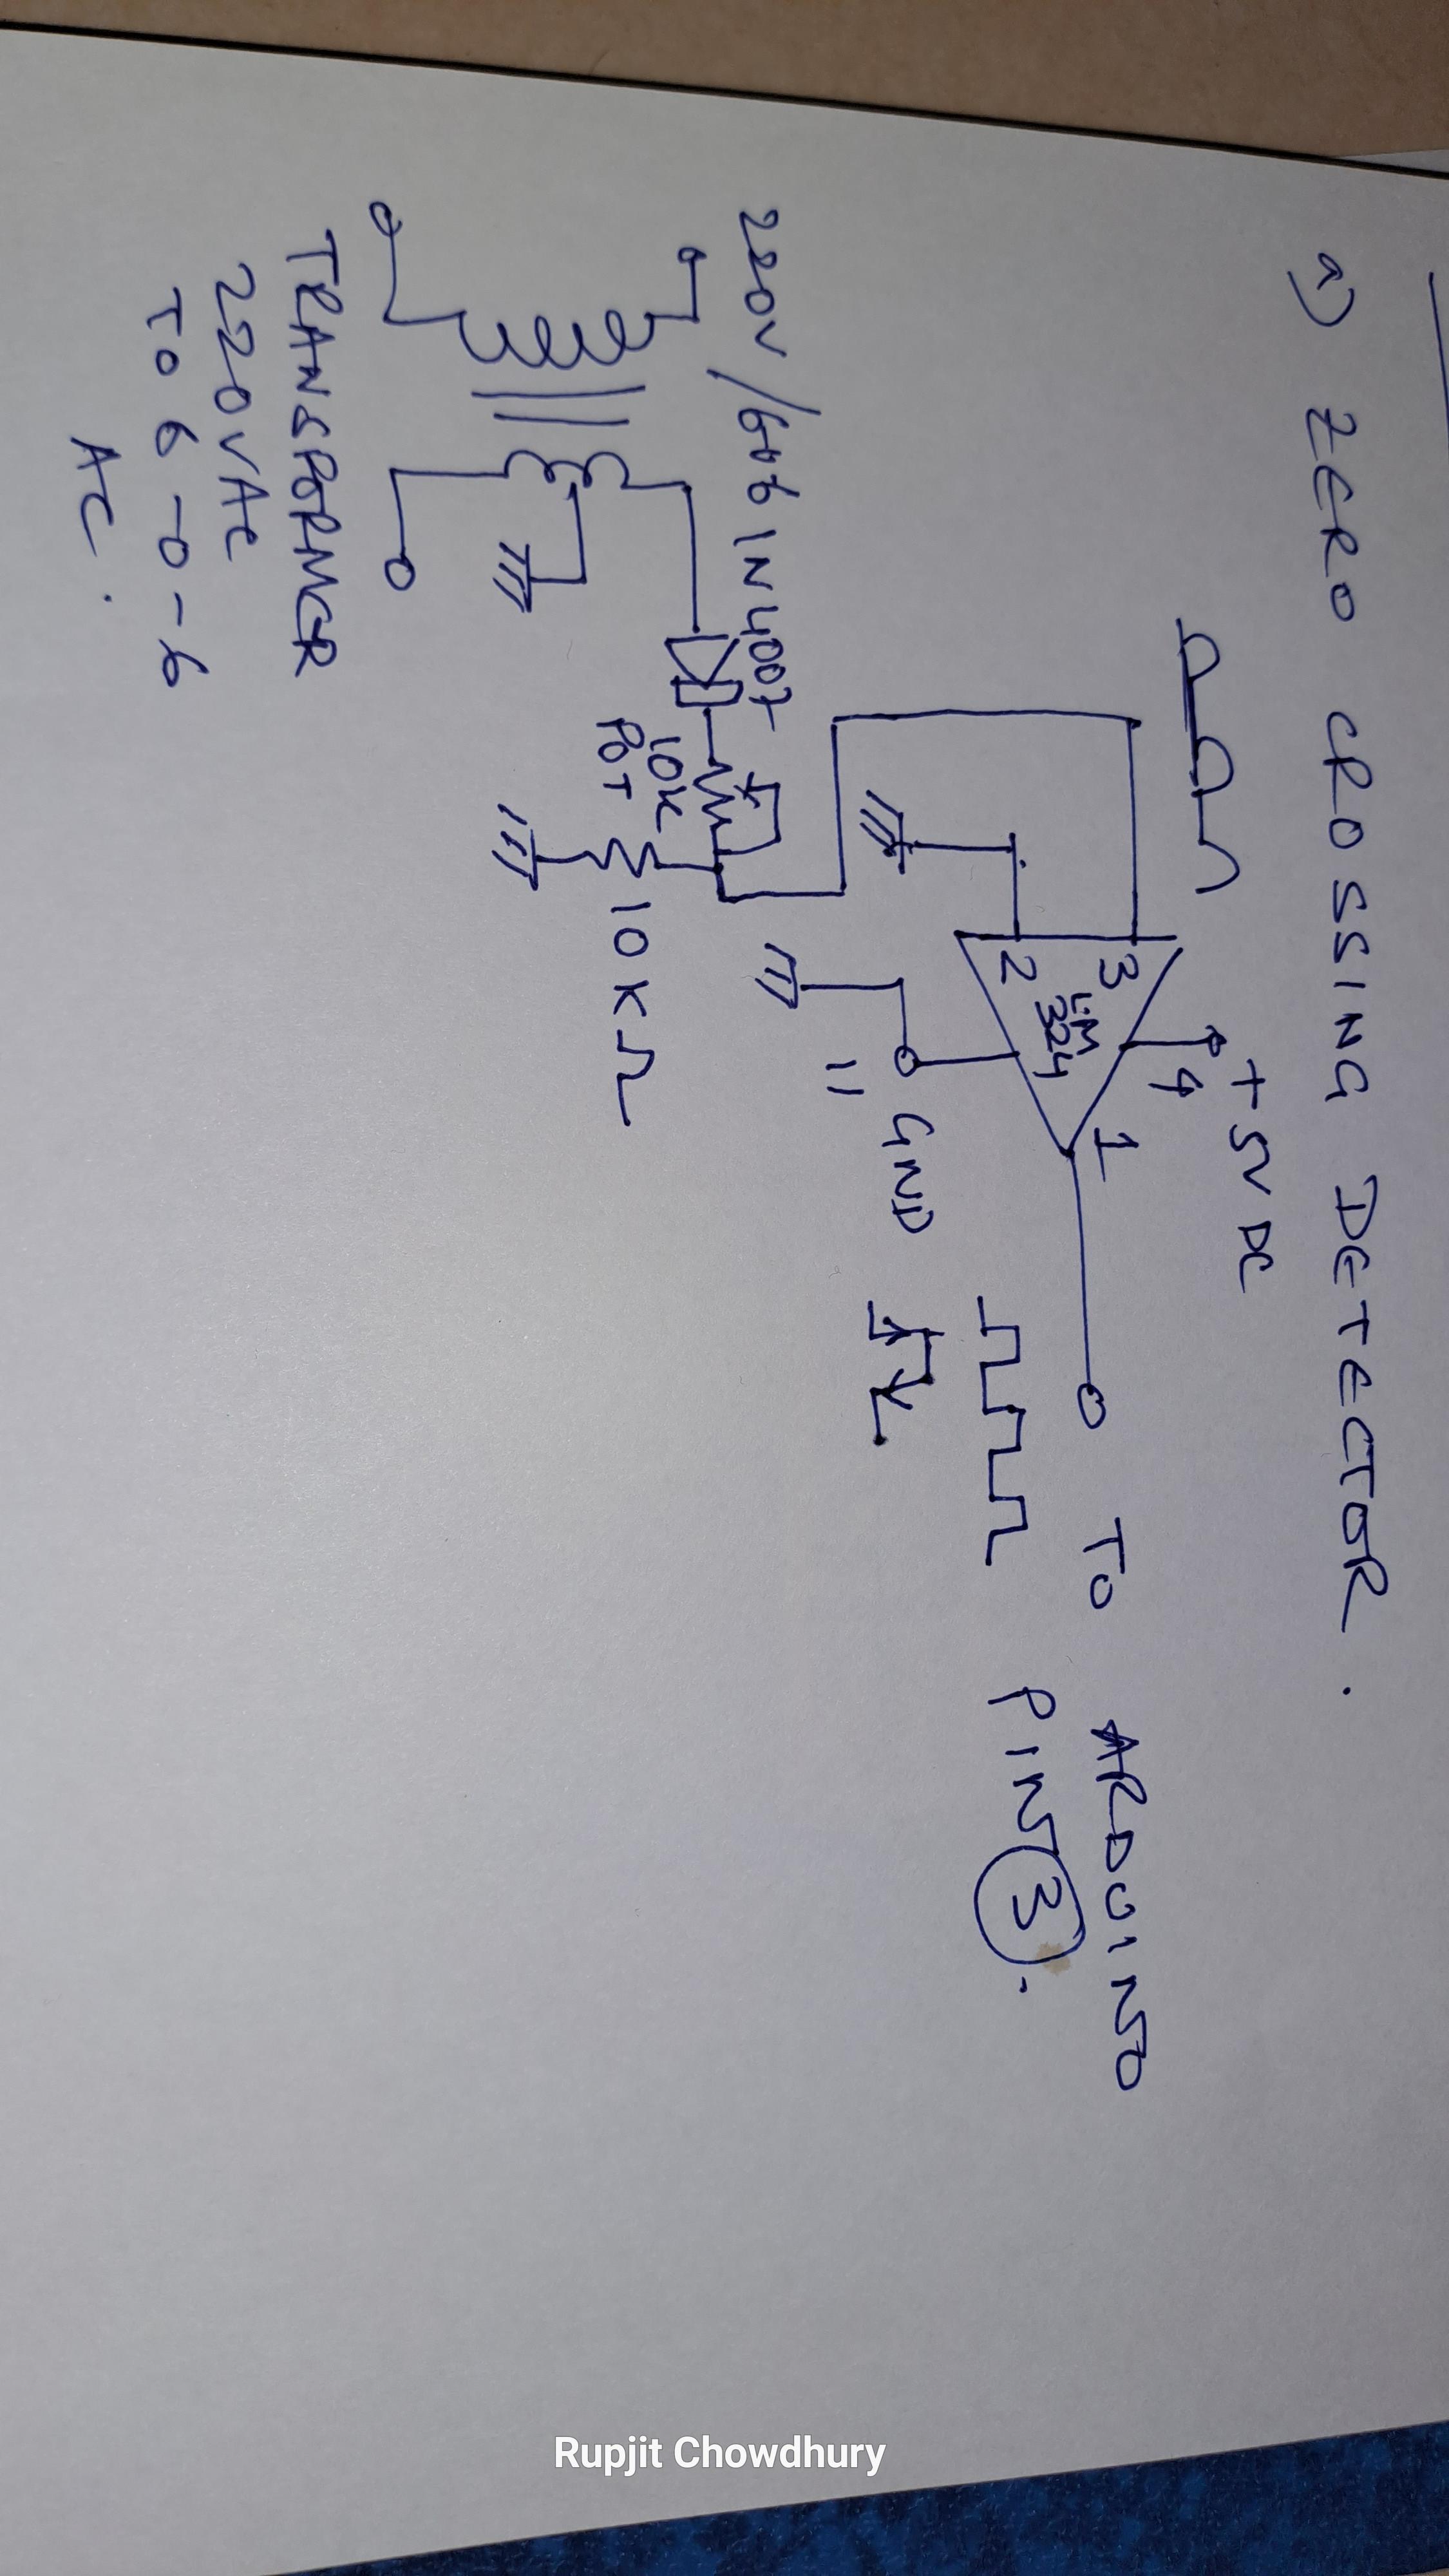 a) ZERO CROSSING DETECTOR.
+5V DC
4
3
2
LM
324
1
TO ARDUINO
PIN 3.
11
GND
220V/606
1N4007
10K
POT
10KΩ
TRANSFORMER
220VAC
TO 6-0-6
AC.
Rupjit Chowdhury